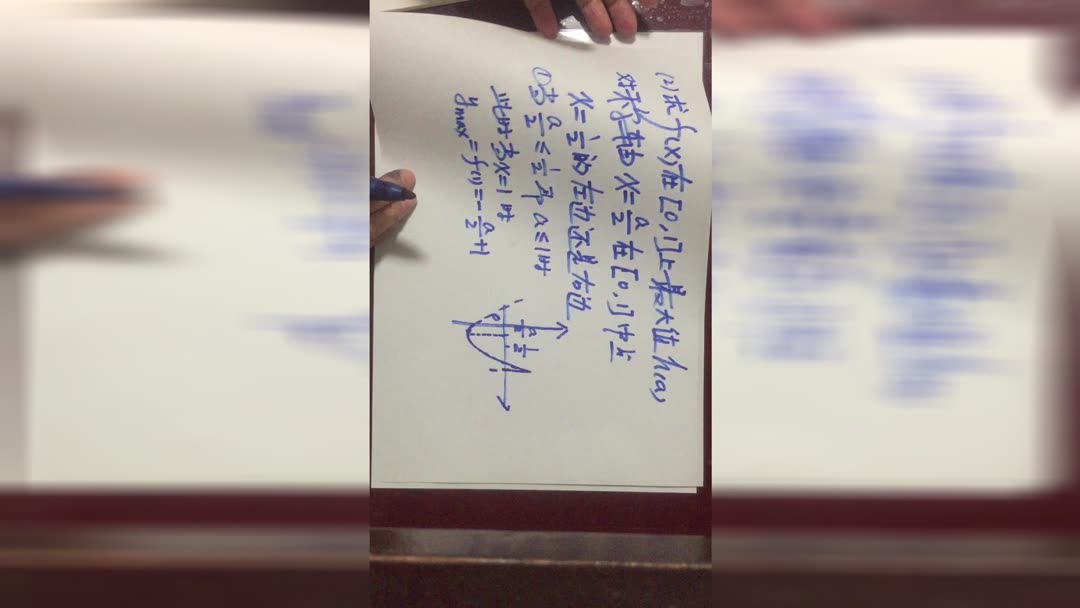 (2)求f(x)在[0,1]上最大值h(a)
对称轴x=a/2在[0,1]中点
x=1/2的左边还是右边
①当a/2≤1/2即a≤1时
此时当x=1时
ymax=f(1)=-a/2+1
0
a/2
1/2
1